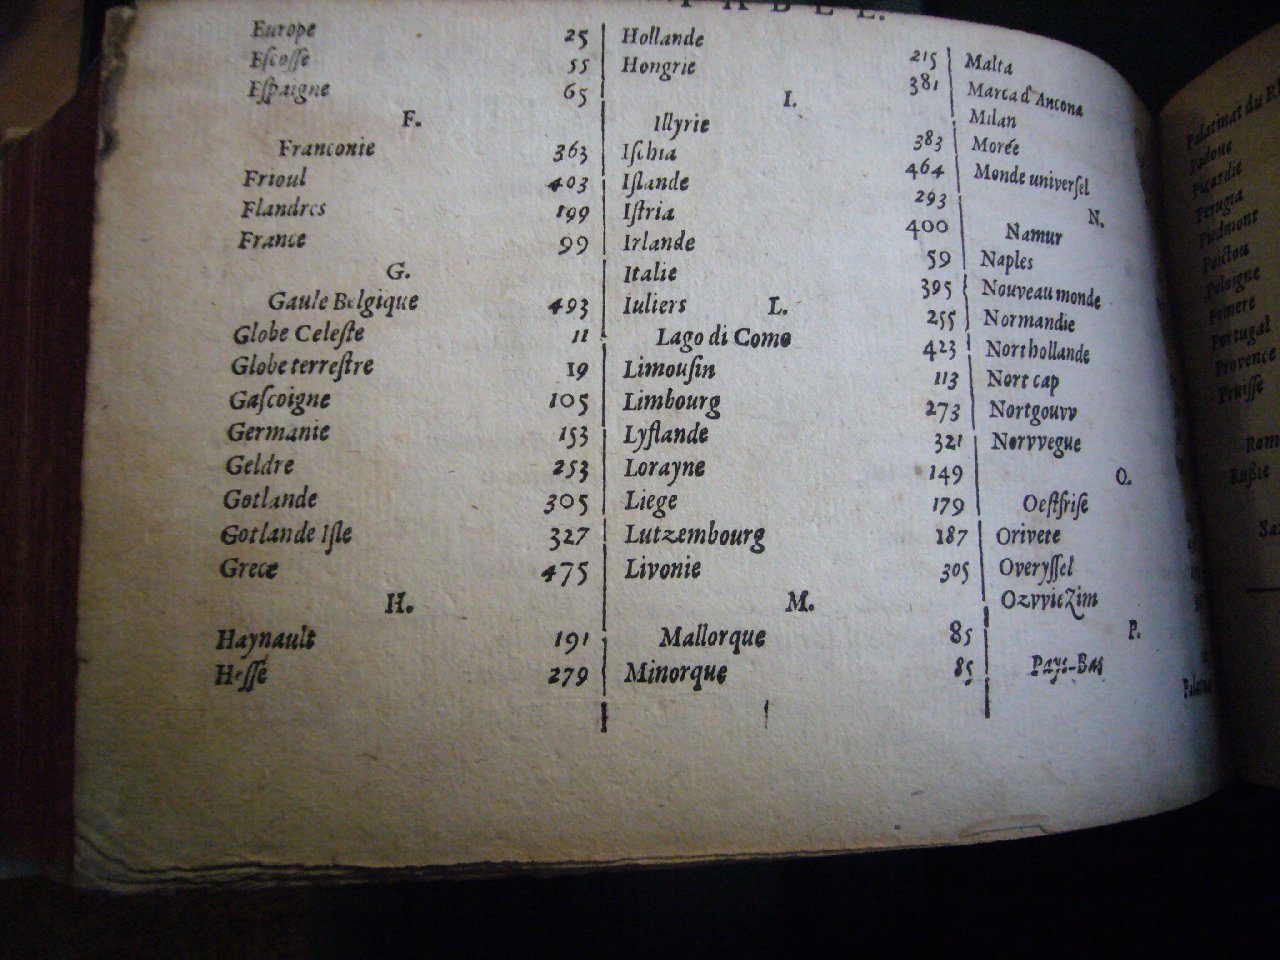 TABEL.
Europe 25
Eſcoſſe 55
Eſpaigne 65
F.
Franconie 363
Frioul 403
Flandres 199
France 99
G.
Gaule Belgique 493
Globe Celeſte 11
Globe terreſtre 19
Gaſcoigne 105
Germanie 153
Geldre 253
Gotlande 305
Gotlande Iſle 327
Grece 475
H.
Haynault 191
Heſſe 279
Hollande 215
Hongrie 381
I.
Illyrie 383
Iſchia 464
Iſlande 293
Iſtria 400
Irlande 59
Italie 395
Iuliers 255
L.
Lago di Como 423
Limouſin 113
Limbourg 273
Lyflande 321
Lorayne 149
Liege 179
Lutzembourg 187
Livonie 305
M.
Mallorque 85
Minorque 85
Malta
Marca d'Ancona
Milan
Morée
Monde univerſel
N.
Namur
Naples
Nouveau monde
Normandie
Northollande
Nort cap
Nortgouvv
Norvvegue
O.
Oeſtfriſe
Orivete
Overyſſel
OzvvieZim
P.
Pays-Bas
Palatinat du
Padoue
Picardie
Perugia
Piedmont
Poictou
Pologne
Pomere
Portugal
Provence
Pruiſſe